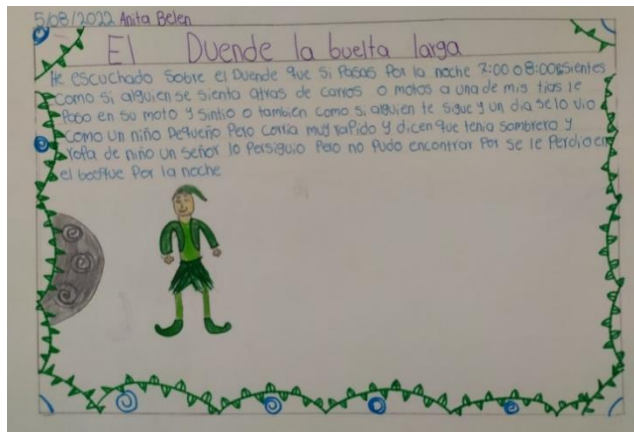 5/08/2022 Anita Belen
El Duende la buelta larga
He escuchado sobre el Duende que si Pasas Por la noche 7:00 o 8:00 sientes
como si alguien se sienta atras de carros o motos a una de mis tias le
Paso en su moto y sintio o tambien como si alguien te sigue y un dia se lo vio
como un niño Pequeño Pero corria muy rapido y dicen que tenia sombrero y
ropa de niño un señor lo Persiguio Pero no Pudo encontrar Por se le Perdio en
el bosque Por la noche